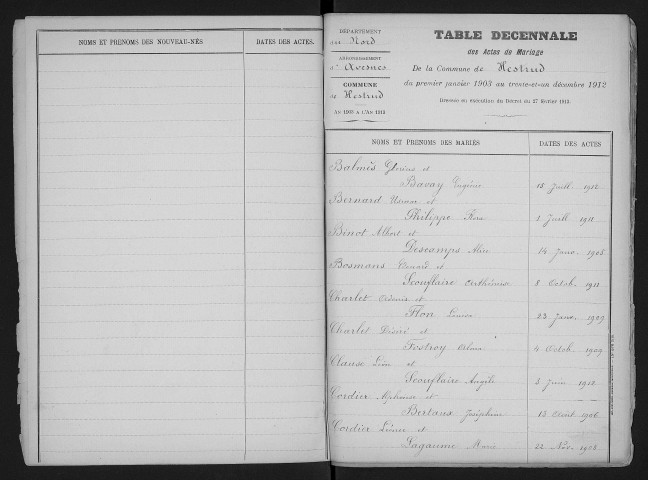 NOMS ET PRÉNOMS DES NOUVEAU-NÉS
DATES DES ACTES.
DÉPARTEMENT
du Nord
ARRONDISSEMENT
d'Avesnes
COMMUNE
de Hestrud
AN 1903 A L'AN 1912
TABLE DÉCENNALE
des Actes de Mariage
De la Commune de Hestrud
du premier janvier 1903 au trente-et-un décembre 1912
Dressée en exécution du Décret du 27 février 1913.
NOMS ET PRÉNOMS DES MARIÉS
DATES DES ACTES
Balmès et
Bavay Eugénie 15 Juill 1912
Bernard et
Philippe 1 Juill 1911
Binot Albert et
Descamps 14 Janv. 1905
Bosmans et
Scouflaire 8 Octob. 1911
Charlet et
Flon 23 Janv. 1909
Charlet Désiré et
Fostroy 4 Octob. 1909
Clause Léon et
Scouflaire Angèle 3 Juin 1912
Cordier Alphonse et
Bertaux Joséphine 13 Août 1906
Cordier et
Lagaume Marie 22 Nov. 1908